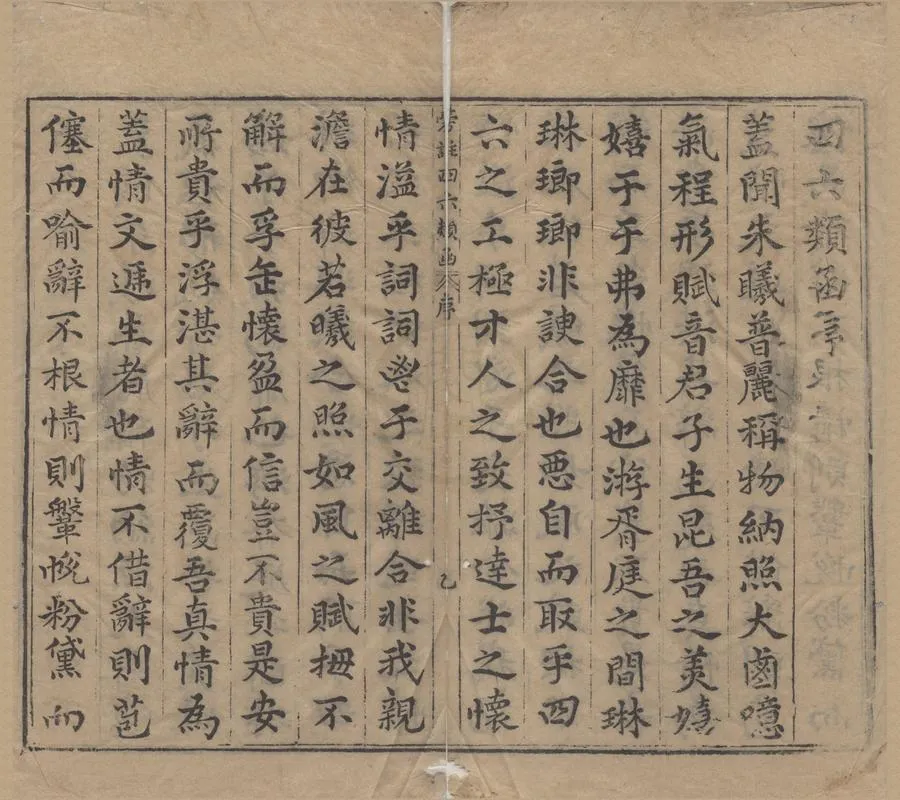 四六類函序
蓋聞朱曦普麗稱物納照大鹵噫
氣程形賦音君子生昆吾之美嬉
嬉于于弗為靡也游胥庭之間琳
琳瑯瑯非諛合也惡自而取乎四
六之工極才人之致抒達士之懷
旁註四六類函 序 乙
情溢乎詞詞鬯于交離合非我親
澹在彼若曦之照如風之賦拇不
解而孚缶懷盈而信豈不貴是安
所貴乎浮湛其辭而覆吾真情為
蓋情文遞生者也情不借辭則苞
僿而喻辭不根情則鞶帨粉黛而